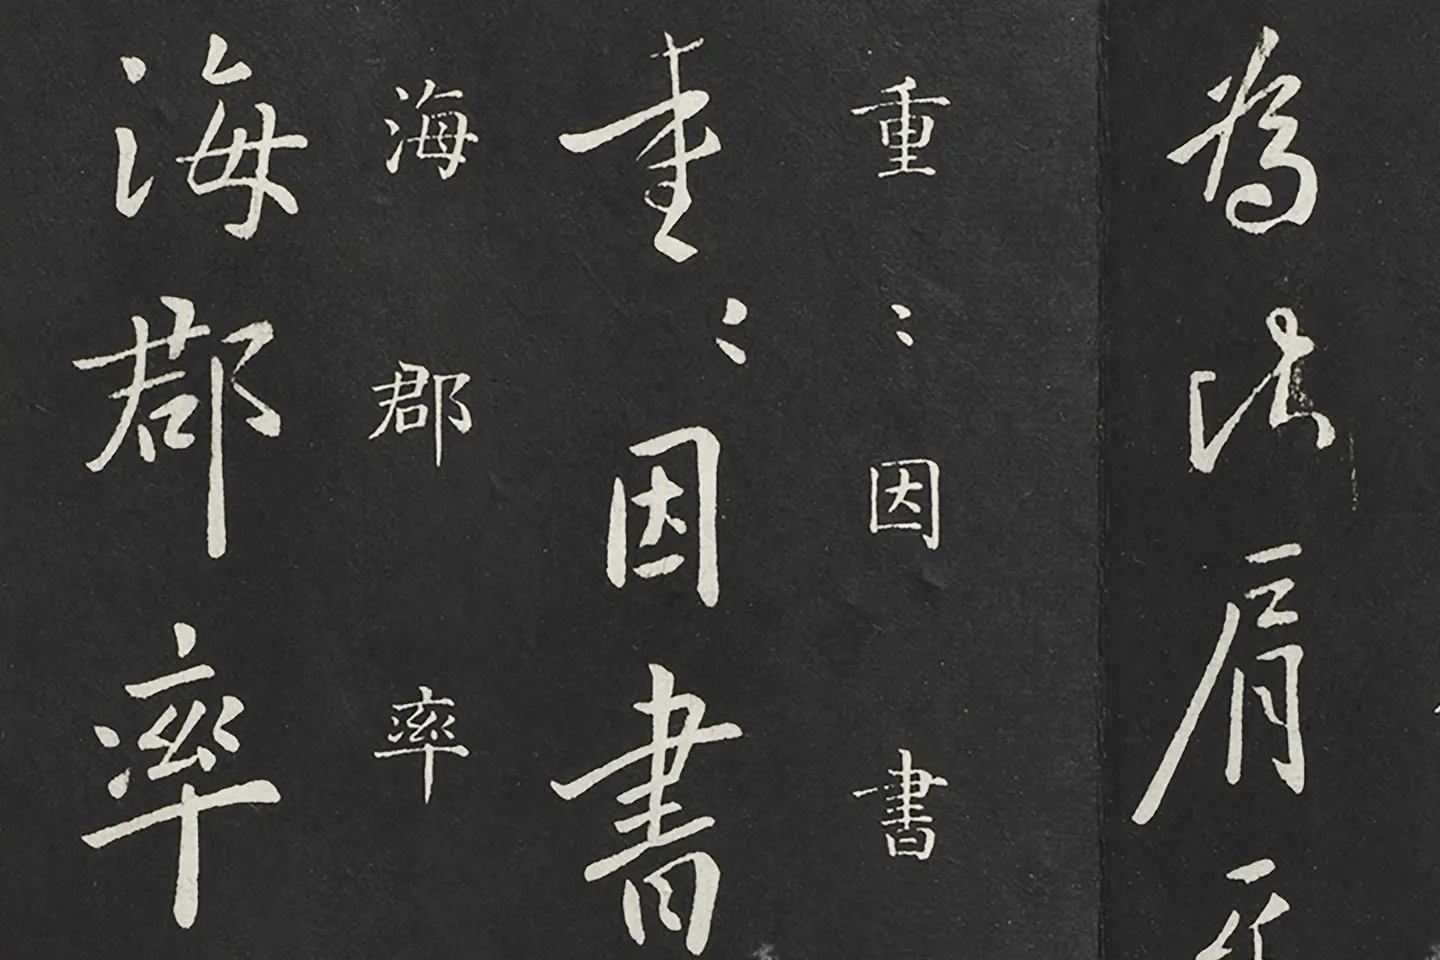 為法肩
重〻因書
重〻因書
海郡率
海郡率